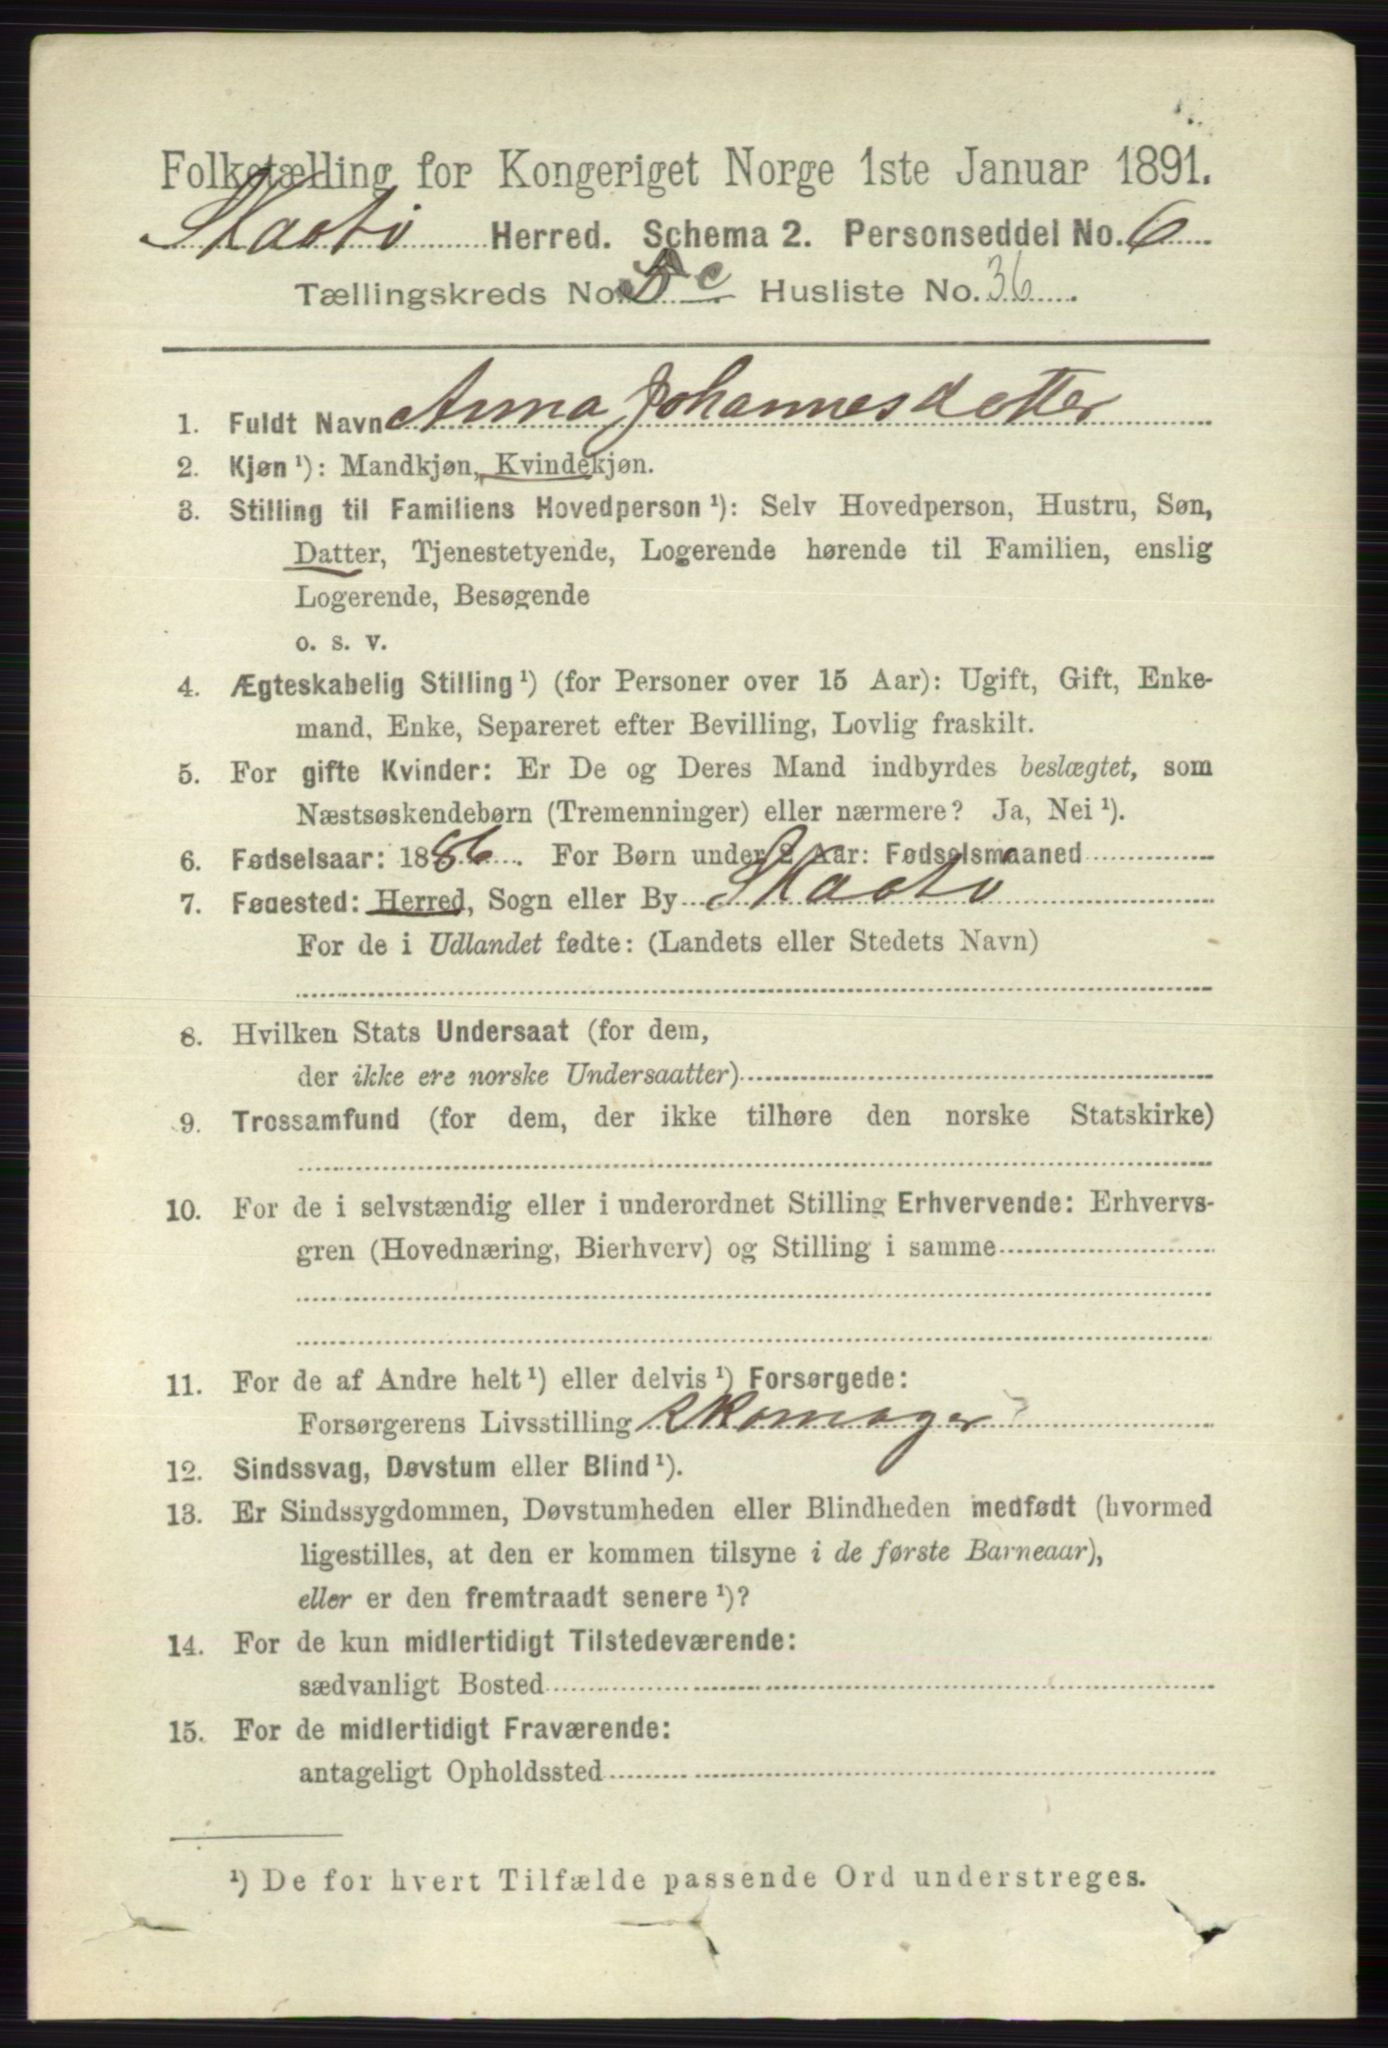 Folketælling for Kongeriget Norge 1ste Januar 1891.
Skaatö Herred. Schema 2. Personseddel No. 6
Tællingskreds No. c Husliste No. 36.
1. Fuldt Navn Anna Johannesdatter
2. Kjøn ¹): Mandkjøn, Kvindekjøn.
3. Stilling til Familiens Hovedperson ¹): Selv Hovedperson, Hustru, Søn,
Datter, Tjenestetyende, Logerende hørende til Familien, enslig
Logerende, Besøgende
o. s. v.
4. Ægteskabelig Stilling ¹) (for Personer over 15 Aar): Ugift, Gift, Enke-
mand, Enke, Separeret efter Bevilling, Lovlig fraskilt.
5. For gifte Kvinder: Er De og Deres Mand indbyrdes beslægtet, som
Næstsøskendebørn (Tremenninger) eller nærmere? Ja, Nei ¹).
6. Fødselsaar: 1886. For Børn under 2 Aar: Fødselsmaaned
7. Fødested: Herred, Sogn eller By Skaatö
For de i Udlandet fødte: (Landets eller Stedets Navn)
8. Hvilken Stats Undersaat (for dem,
der ikke ere norske Undersaatter)
9. Trossamfund (for dem, der ikke tilhøre den norske Statskirke)
10. For de i selvstændig eller i underordnet Stilling Erhvervende: Erhvervs-
gren (Hovednæring, Bierhverv) og Stilling i samme
11. For de af Andre helt ¹) eller delvis ¹) Forsørgede:
Forsørgerens Livsstilling Skomager ?
12. Sindssvag, Døvstum eller Blind ¹).
13. Er Sindssygdommen, Døvstumheden eller Blindheden medfødt (hvormed
ligestilles, at den er kommen tilsyne i de første Barneaar),
eller er den fremtraadt senere ¹)?
14. For de kun midlertidigt Tilstedeværende:
sædvanligt Bosted
15. For de midlertidigt Fraværende:
antageligt Opholdssted
¹) De for hvert Tilfælde passende Ord understreges.